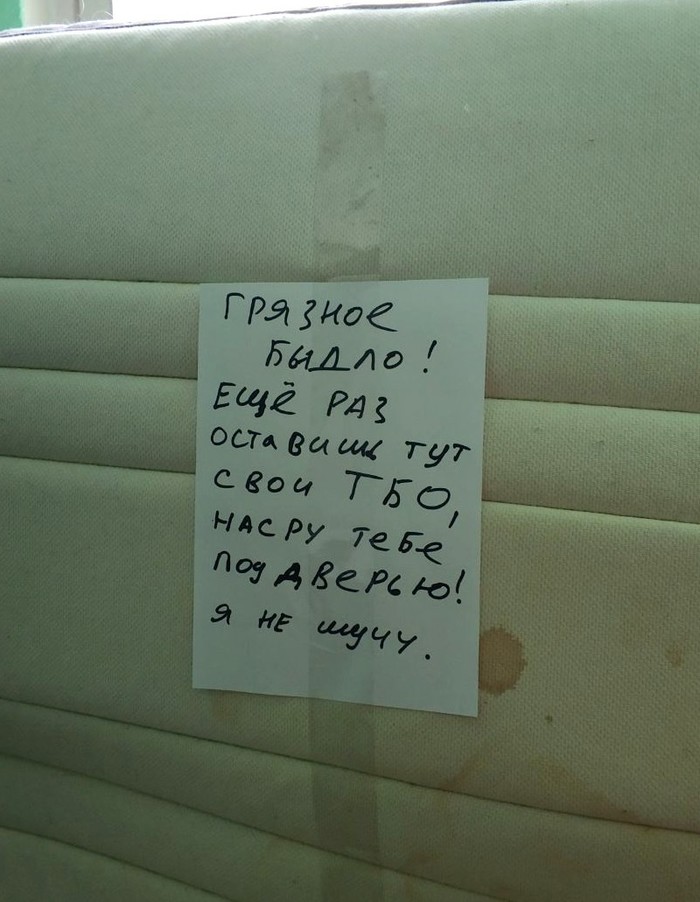 ГРЯЗНОЕ
БЫДЛО!
ЕЩЁ РАЗ
ОСТАВИШЬ ТУТ
СВОИ ТБО,
НАСРУ ТЕБЕ
ПОД ДВЕРЬЮ!
Я НЕ ШУЧУ.